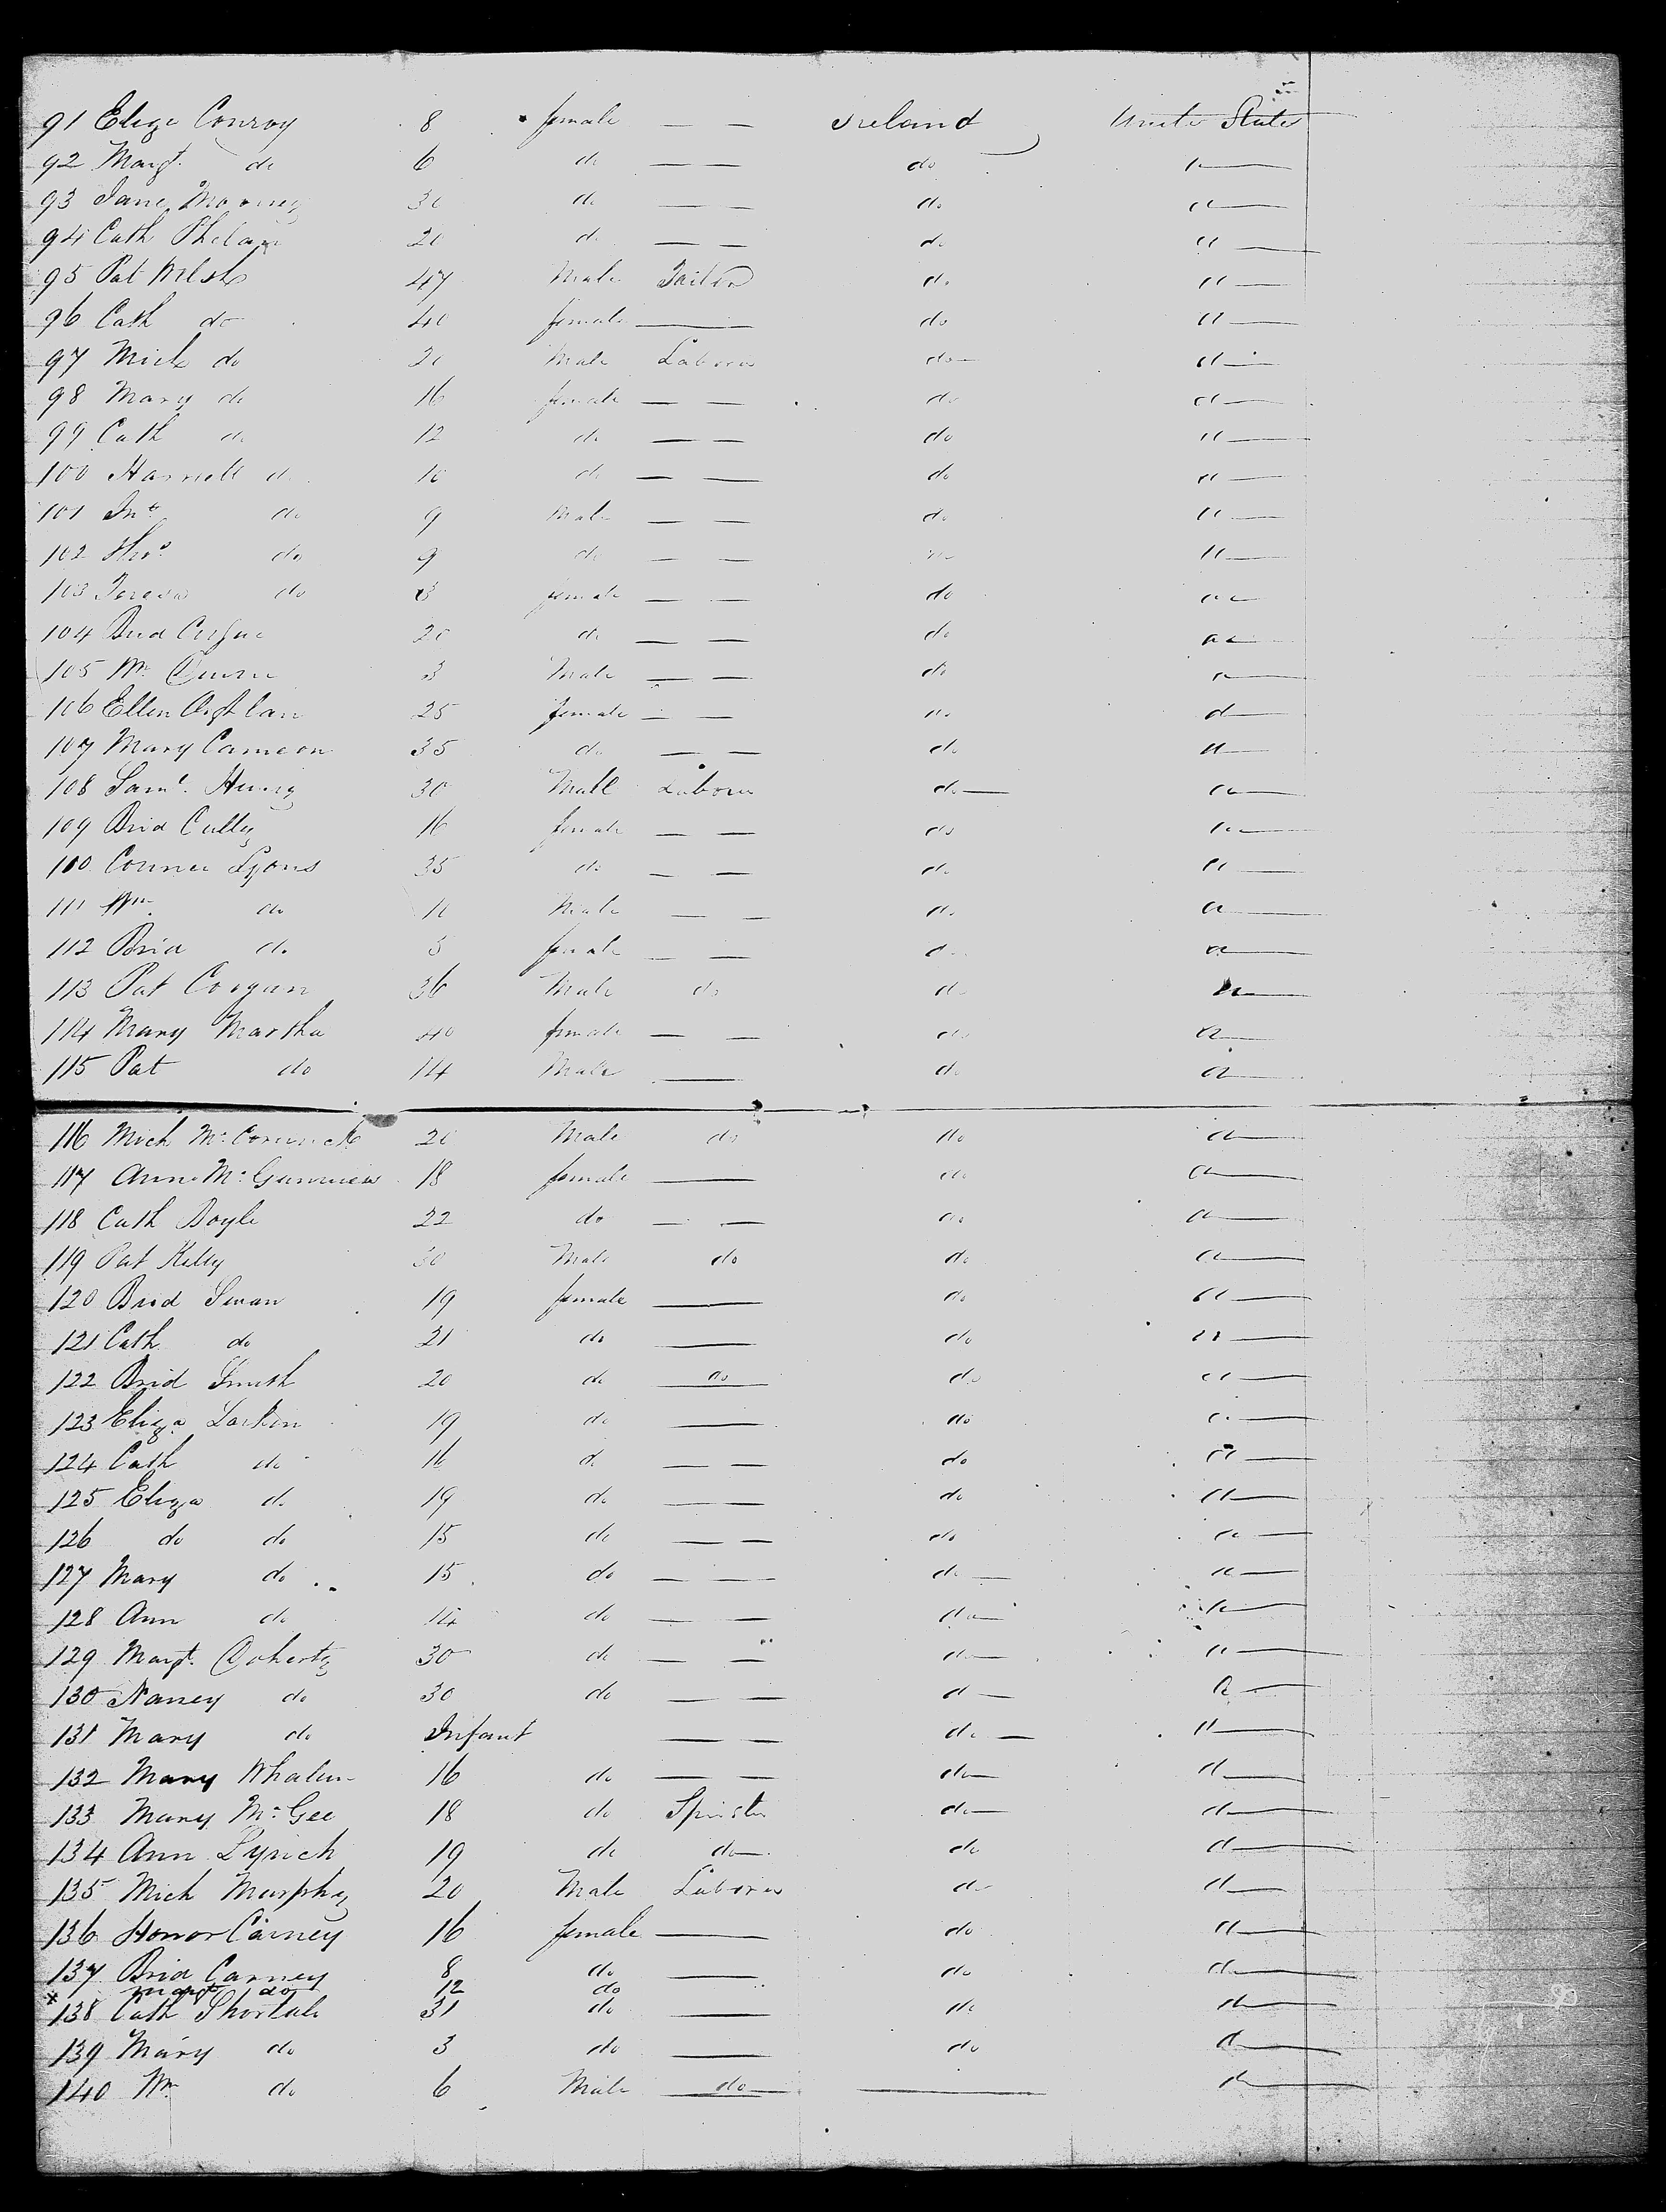 91 Eliza Conroy 8 female — — Ireland Unite States
92 Margt. do 6 do — — do "—
93 Jane Mooney 30 do — — do "—
94 Cath Phelan 20 do — — do "—
95 Pat Welsh 47 Male Tailor do "—
96 Cath do 40 female — do "—
97 Mich do 20 Male Laborer do "—
98 Mary do 16 female — — do "—
99 Cath do 12 do — — do "—
100 do 10 do — — do "—
101 Jno do 9 Male — — do "—
102 Thos do 9 do — — do "—
103 Teresa do female — — do "—
104 Brid 20 do — — do "—
105 Wm 3 Male — — do "—
106 Ellen 25 female — — do "—
107 Mary Cameon 35 do — — do "—
108 Saml. 30 Male Laborer do "—
109 Brid Cully 16 female — — do "—
110 Lyons 35 do — — do "—
111 Wm do Male — — do "—
112 Brid do female — — do "—
113 Pat Coogan 36 Male do do "—
114 Mary Martha 40 female — — do "—
115 Pat do 14 Male — do "—
116 Mich McCormick 20 Male do do "—
117 Ann 18 female — do "—
118 Cath Boyle 22 do — — do "—
119 Pat Kelly 30 Male do do "—
120 Brid Swan 19 female — do "—
121 Cath do 21 do — do "—
122 Brid Smith 20 do do do "—
123 Eliza Larkin 19 do — do "—
124 Cath do 16 do — — do "—
125 Eliza do 19 do — — do "—
126 do do 15 do — — do "—
127 Mary do 15 do — — do "—
128 Ann do 14 do — — do "—
129 Margt. Doherty 30 do — — do "—
130 Nancy do 30 do — — do "—
131 Mary do Infant — — do "—
132 Mary Whalen 16 do — — do "—
133 Mary McGee 18 do Spinster do "—
134 Ann Lynch 19 do do do "—
135 Mich Murphy 20 Male Laborer do "—
136 Honor Carney 16 female — do "—
137 Brid Carney 8 do — do "—
x Margt do 12 do
138 Cath 31 do — do "—
139 Mary do 3 do — do "—
140 Wm do 6 Male do — "—